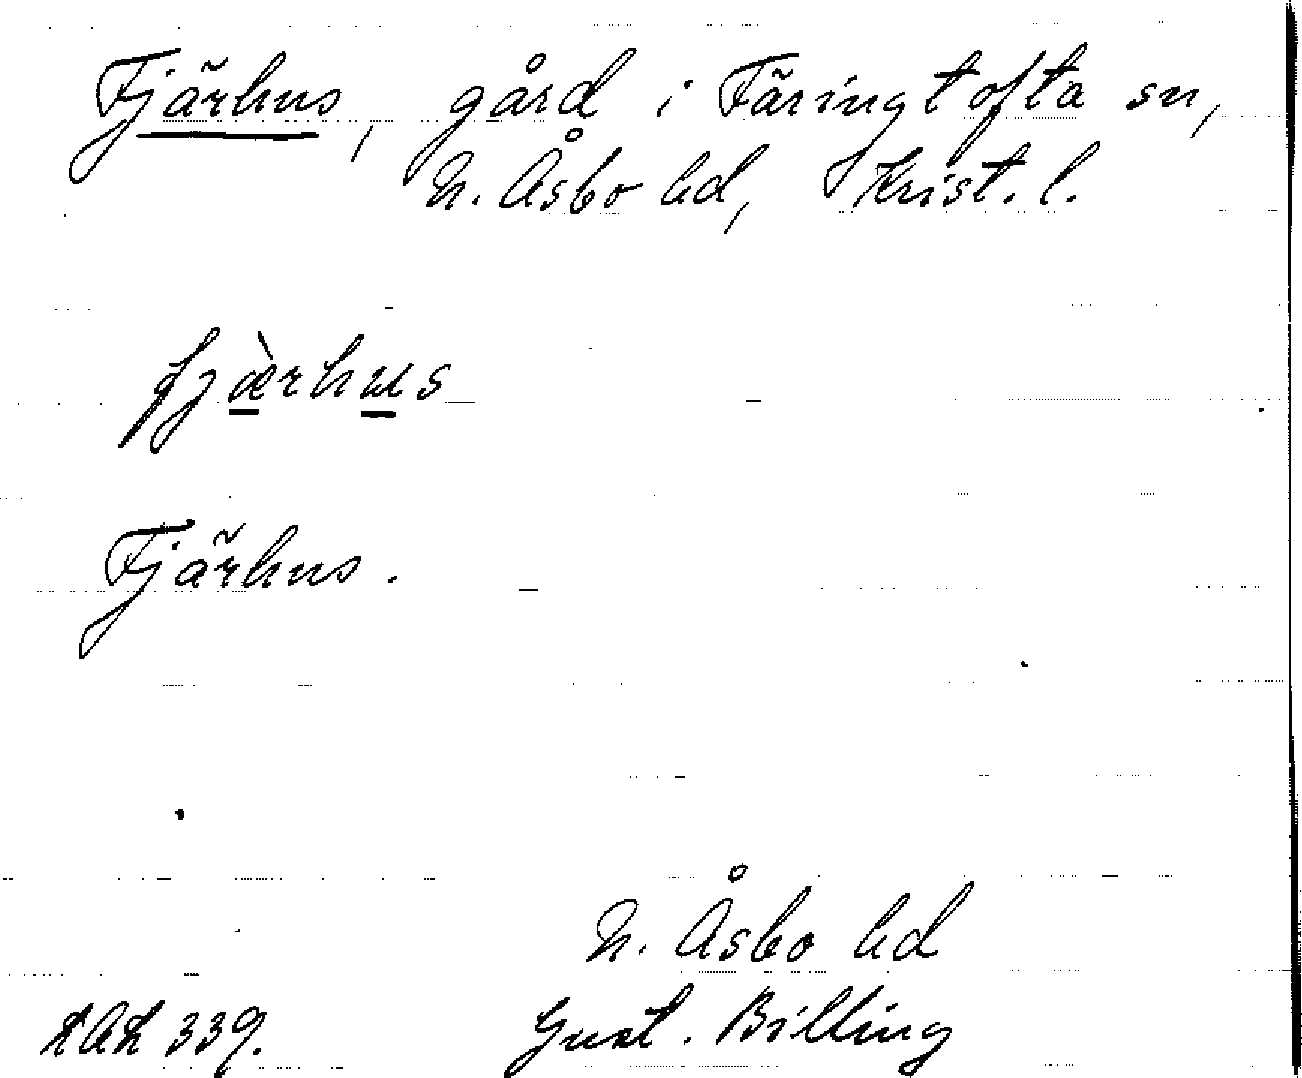 Fjärhus, gård i Färingtofta sn,
N. Åsbo hd, Krist. l.
fjæ̀rhus
Fjärhus.
N. Åsbo hd
339. Gust. Billing